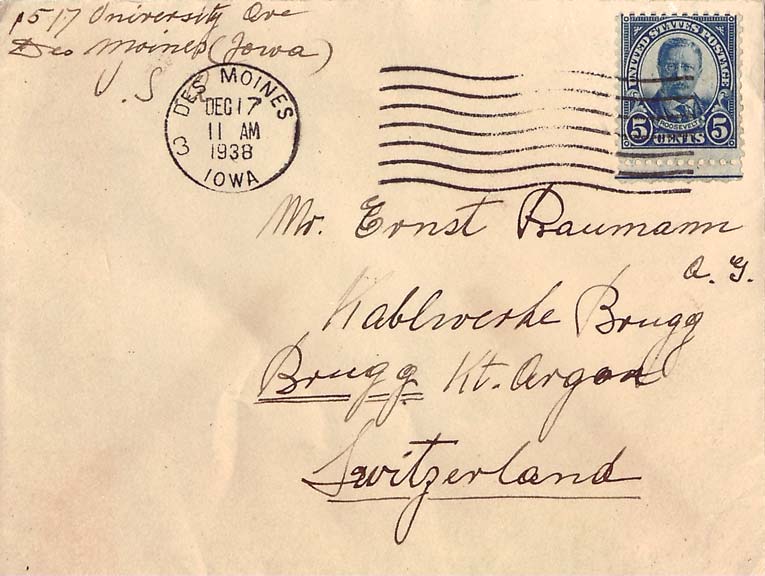 1517 University Ave
Des Moines (Iowa)
U.S
DES MOINES
DEC 17
11 AM
1938
3
IOWA
UNITED STATES POSTAGE
ROOSEVELT
5 CENTS 5
Mr. Ernst Baumann
A. G.
Kablwerke Brugg
Brugg Kt. Argau
Switzerland